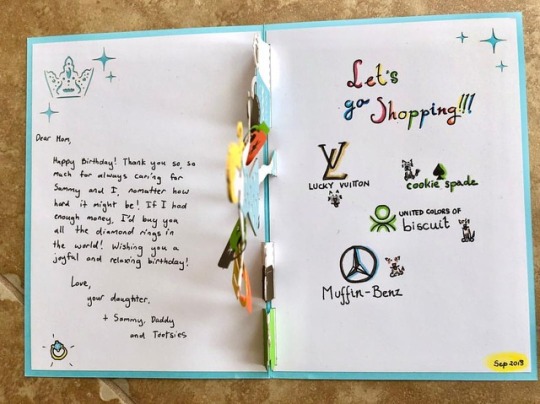 Dear Mom,
Happy Birthday! Thank you so, so
much for always caring for
Sammy and I, nomatter how
hard it might be! If I had
enough money, I'd buy you
all the diamond rings in
the world! Wishing you a
joyful and relaxing birthday!
Love,
your daughter.
+ Sammy, Daddy
and Tootsies
Let's
go Shopping!!!
LV
LUCKY VUITTON
cookie spade
UNITED COLORS OF
biscuit
Muffin-Benz
Sep 2018